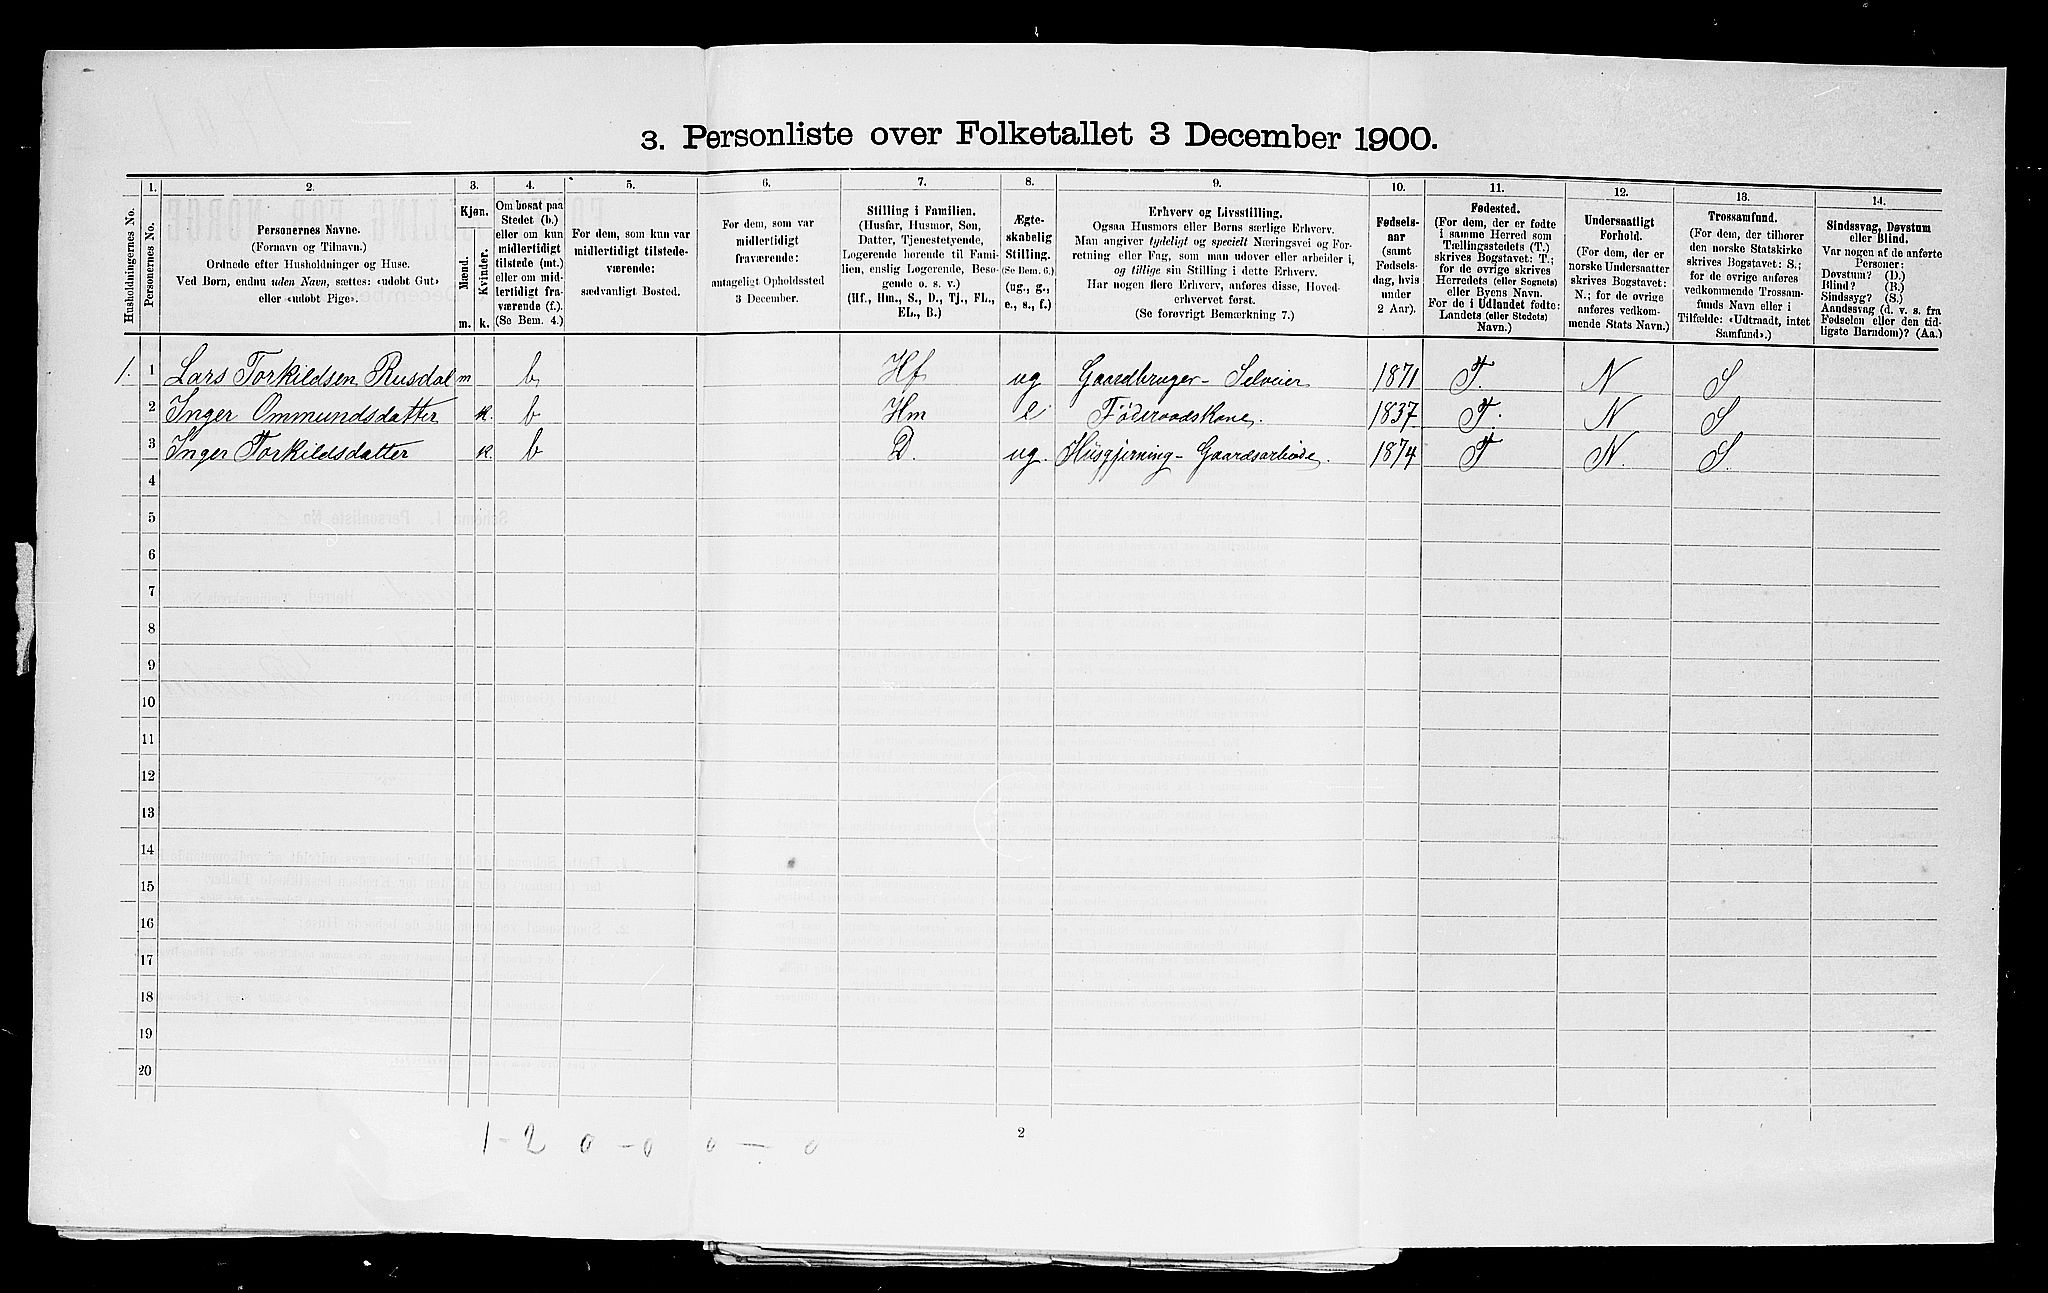 3. Personliste over Folketallet 3 December 1900.
Husholdningernes No.
1.
Personernes No.
2.
Personernes Navne.
(Fornavn og Tilnavn.)
Ordnede efter Husholdninger og Huse.
Ved Børn, endnu uden Navn, sættes: «udøbt Gut»
eller «udøbt Pige».
3.
Kjøn.
Mænd.
Kvinder.
m. k.
4.
Om bosat paa
Stedet (b.)
eller om kun
midlertidigt
tilstede (mt.)
eller om mid-
lertidigt fra-
værende (f.).
(Se Bem. 4.)
5.
For dem, som kun var
midlertidigt tilstede-
værende:
sædvanligt Bosted.
6.
For dem, som var
midlertidigt
fraværende:
antageligt Opholdssted
3 December.
7.
Stilling i Familien.
(Husfar, Husmor, Søn,
Datter, Tjenestetyende,
Logerende hørende til Fami-
lien, enslig Logerende, Besø-
gende o. s. v.)
(Hf., Hm., S., D., Tj., FL.,
EL., B.)
8.
Ægte-
skabelig
Stilling.
(Se Bem. 6.)
(ug., g.,
e., s., f.)
9.
Erhverv og Livsstilling.
Ogsaa Husmors eller Børns særlige Erhverv.
Man angiver tydeligt og specielt Næringsvei og For-
retning eller Fag, som man udover eller arbeider i,
og tillige sin Stilling i dette Erhverv.
Har nogen flere Erhverv, anføres disse, Hoved-
erhvervet først.
(Se forøvrigt Bemærkning 7.)
10.
Fødsels-
aar
(samt
Fødsels-
dag, hvis
under
2 Aar).
11.
Fødested.
(For dem, der er fødte
i samme Herred som
Tællingsstedets (T.)
skrives Bogstavet: T.;
for de øvrige skrives
Herredets (eller Sognets)
eller Byens Navn.
For de i Udlandet fødte:
Landets (eller Stedets)
Navn.)
12.
Undersaatligt
Forhold.
(For dem, der er
norske Undersaatter
skrives Bogstavet:
N.; for de øvrige
anføres vedkom-
mende Stats Navn.)
13.
Trossamfund.
(For dem, der tilhører
den norske Statskirke
skrives Bogstavet: S.;
for de øvrige anføres
vedkommende Trossam-
funds Navn eller i
Tilfælde: «Udtraadt, intet
Samfund».)
14.
Sindssvag, Døvstum
eller Blind.
Var nogen af de anførte
Personer:
Døvstum? (D.)
Blind? (B.)
Sindssyg? (S.)
Aandssvag (d. v. s. fra
Fødselen eller den tid-
ligste Barndom)? (Aa.)
1. 1 Lars Torkildsen Rusdal m b Hf ug Gaardbruger - Selveier 1871 T. N S
2 Inger Ommundsdatter k. b Hm e Føderaadskone. 1837 T. N S
3 Inger Torkildsdatter k. b D. ug. Husgjerning - Gaardsarbeide. 1874 T N. S.
4
5
6
7
8
9
10
11
12
13
14
15
16
17
18
19
20
1-2 0-0 0-0
2